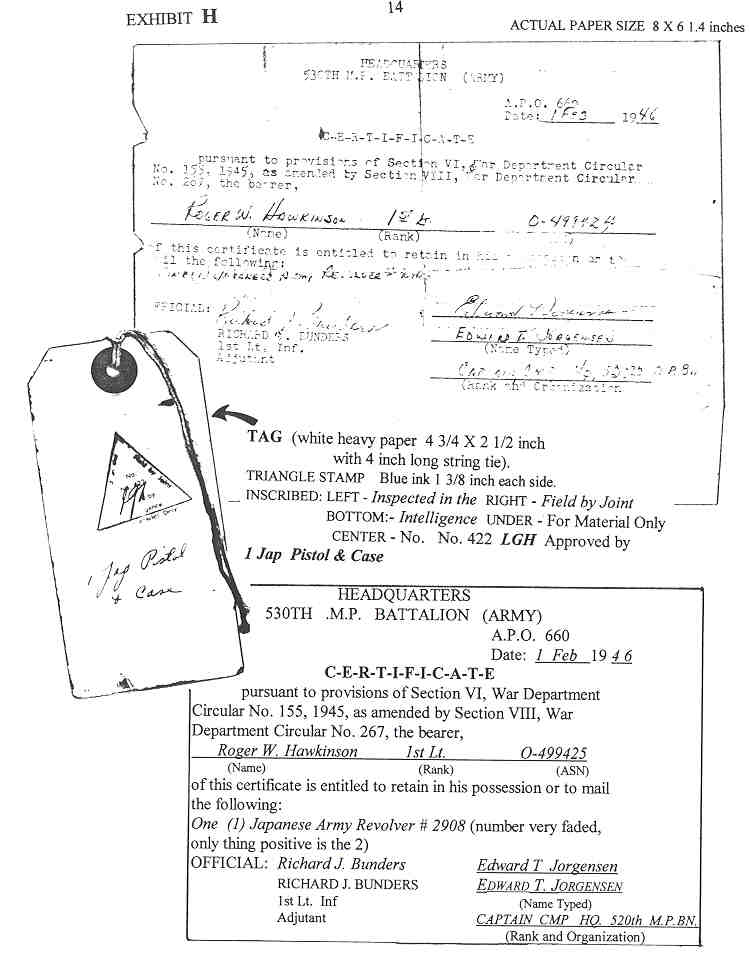 EXHIBIT H
14
ACTUAL PAPER SIZE 8 X 6 1.4 inches
HEADQUARTERS
530TH M.P. BATTALION (ARMY)
A.P.O. 660
Date: 1 Feb 1946
C-E-R-T-I-F-I-C-A-T-E
pursuant to provisions of Section VI, War Department Circular
No. 155, 1945, as amended by Section VIII, War Department Circular
No. 267, the bearer,
Roger W. Hawkinson 1st Lt. O-499424
(Name) (Rank)
of this certificate is entitled to retain in his
the following:
OFFICIAL:
RICHARD J. BUNDERS
1st Lt. Inf.
Adjutant
EDWARD T. JORGENSEN
(Name Typed)
(Rank and Organization
TAG (white heavy paper 4 3/4 X 2 1/2 inch
with 4 inch long string tie).
TRIANGLE STAMP Blue ink 1 3/8 inch each side.
INSCRIBED: LEFT - Inspected in the RIGHT - Field by Joint
BOTTOM:- Intelligence UNDER - For Material Only
CENTER - No. No. 422 LGH Approved by
1 Jap Pistol & Case
1 Jap Pistol
& Case
HEADQUARTERS
530TH .M.P. BATTALION (ARMY)
A.P.O. 660
Date: 1 Feb 1946
C-E-R-T-I-F-I-C-A-T-E
pursuant to provisions of Section VI, War Department
Circular No. 155, 1945, as amended by Section VIII, War
Department Circular No. 267, the bearer,
Roger W. Hawkinson 1st Lt. O-499425
(Name) (Rank) (ASN)
of this certificate is entitled to retain in his possession or to mail
the following:
One (1) Japanese Army Revolver # 2908 (number very faded,
only thing positive is the 2)
OFFICIAL: Richard J. Bunders Edward T Jorgensen
RICHARD J. BUNDERS EDWARD T. JORGENSEN
1st Lt. Inf (Name Typed)
Adjutant CAPTAIN CMP HQ. 520th M.P.BN.
(Rank and Organization)